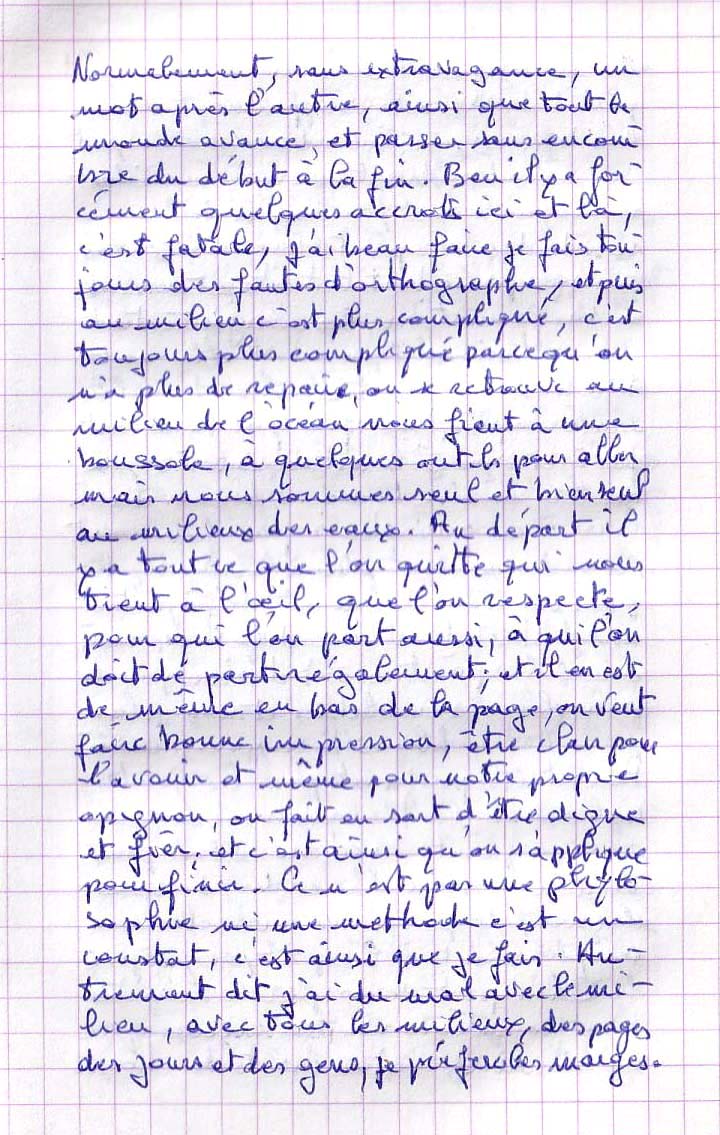 Normalement, sans extravagance, un
mot après l'autre, ainsi que tout le
monde avance, et passer sans encom
bre du début à la fin. Ben il y a for
cément quelques accrots ici et là,
c'est fatale, j'ai beau faire je fais tou
jours des fautes d'orthographe, et puis
au milieu c'est plus compliqué, c'est
toujours plus compliqué parcequ'on
n'a plus de repaire, on se retrouve au
milieu de l'océan nous fient à une
boussole, à quelques outils pour aller
mais nous sommes seul et bien seul
au milieux des eaux. Au départ il
y a tout ce que l'on quitte qui nous
tient à l'œil, que l'on respecte,
pour qui l'on part aussi, à qui l'on
doit de partir également; et il en est
de même en bas de la page, on veut
faire bonne impression, être clair pour
l'avenir et même pour notre propre
opignon, on fait en sort d'être digne
et fier, et c'est ainsi qu'on s'applique
pour finir. Ce n'est pas une phylo-
sophie ni une methode c'est un
constat, c'est ainsi que je fais. Au-
trement dit j'ai du mal avec le mi-
lieu, avec tous les milieux, des pages
des jours et des gens, je préfère les marges.